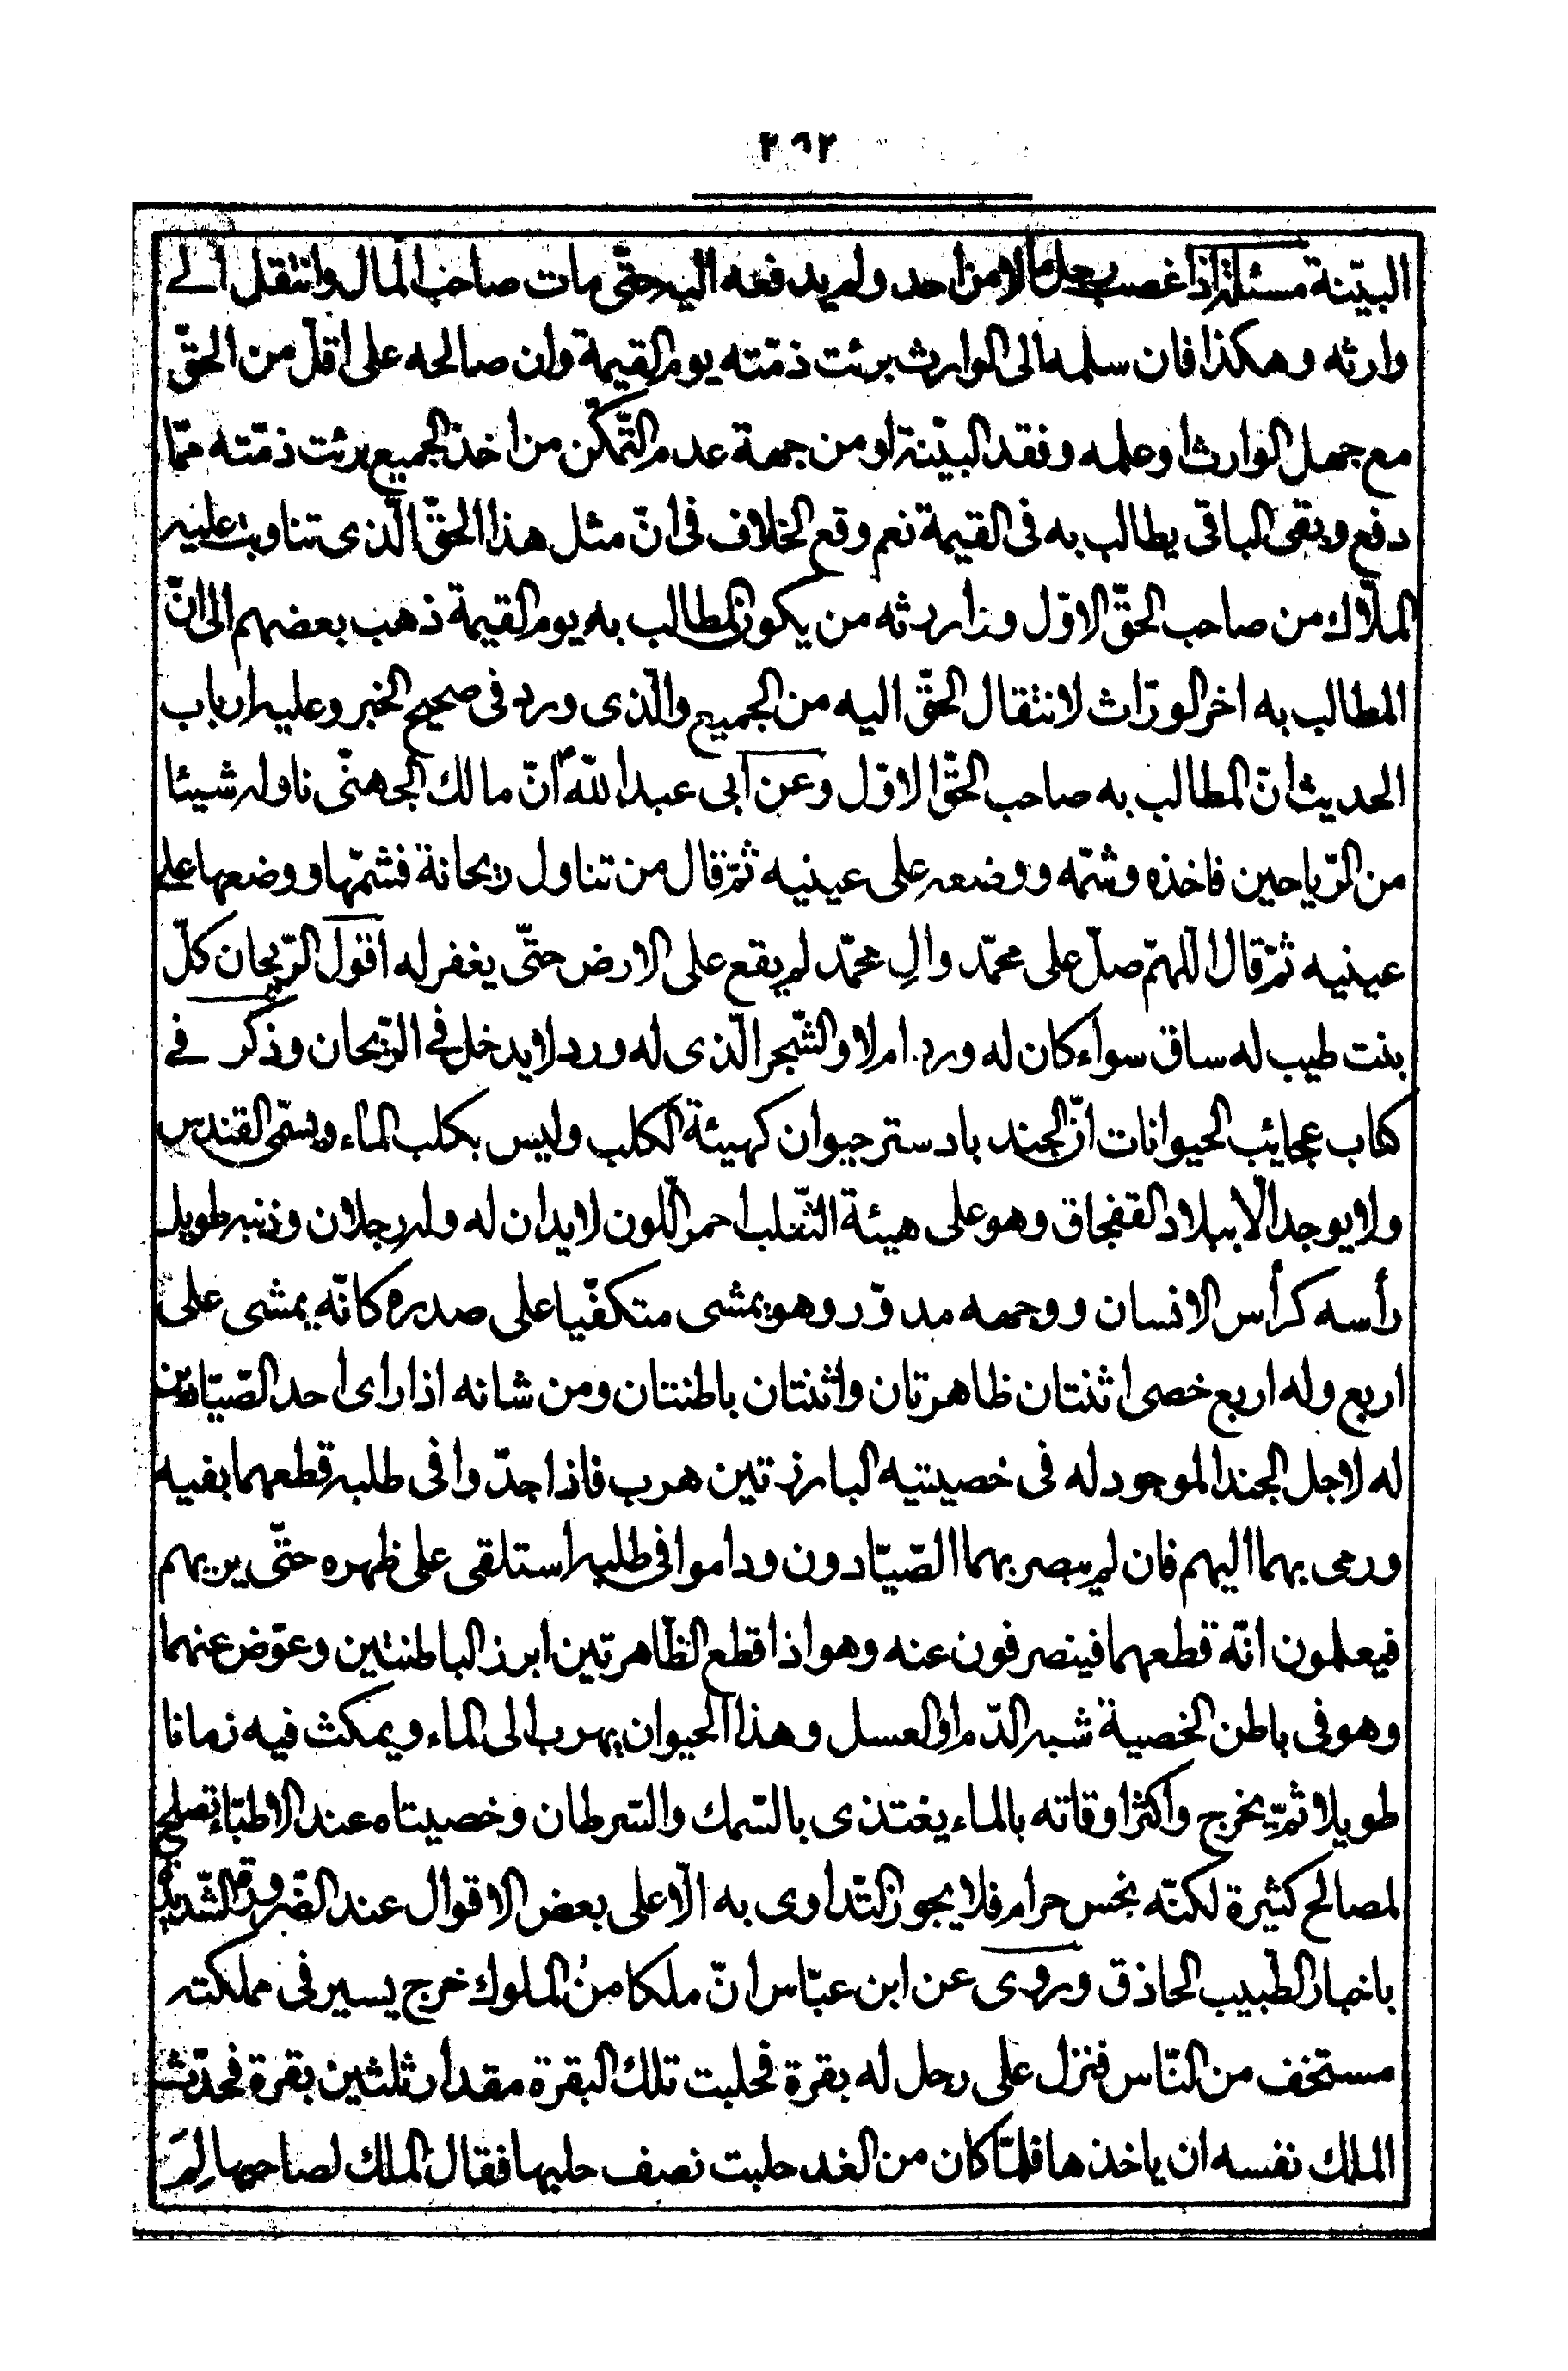 ٢٩٢
البيّنة مسئلة اذا غصب رجل مالا من احد ولم يدفعه اليه حتّى مات صاحب المال وانتقل الى
وارثه وهكذا فان سلمه الى الوارث برئت ذمّته يوم القيمة وان صالحه على اقلّ من الحقّ
مع جهل الوارث او علمه وفقد البيّنة او من جهة عدم التّمكّن من اخذ الجميع برئت ذمّته ممّا
دفع وبقى الباقى يطالب به فى القيمة نعم وقع الخلاف فى انّ مثل هذا الحقّ الّذى تناوبت عليه
الملّاك من صاحب الحقّ الاوّل ووارثه من يكون المطالب به يوم القيمة ذهب بعضهم الى انّ
المطالب به اخر الورّاث لانتقال الحقّ اليه من الجميع والّذى ورد فى صحيح الخبر وعليه ارباب
الحديث انّ المطالب به صاحب الحقّ الاوّل وعن ابى عبد اللّه انّ مالك الجهنّى ناوله شيئا
من الرّياحين فاخذه وشمّه ووضعه على عينيه ثمّ قال من تناول ريحانة فشمّها ووضعها على
عينيه ثمّ قال اللّهمّ صلّ على محمّد والِ محمّد لم يقع على الارض حتّى يغفر له اقول الرّيحان كلّ
بنت طيب له ساق سواء كان له ورد ام لا والشّجر الّذى له ورد لا يدخل فى الرّيحان وذكر فى
كتاب عجايب الحيوانات انّ الجند بادستر حيوان كهيئة الكلب وليس بكلب الماء ويسمّى القندس
ولا يوجد الّا ببلاد القفجاق وهو على هيئة الثّعلب احمر اللّون لا يدان له وله رجلان وذنبه طويل
رأسه كرأس الانسان ووجهه مدوّر وهو يمشى متكفّيا على صدره كانّه يمشى على
اربع وله اربع خصى اثنتان ظاهرتان واثنتان باطنتان ومن شانه اذا راى احد الصّيّادين
له لاجل الجند الموجود له فى خصيتيه البارزتين هرب فاذا جدّوا فى طلبه قطعهما بفيه
ورمى بهما اليهم فان لم يبصر بهما الصّيّادون وداموا فى طلبه استلقى على ظهره حتّى يريهم
فيعلمون انّه قطعهما فينصرفون عنه وهو اذا قطع الظّاهرتين ابرز الباطنتين وعوّض عنهما
وهو فى باطن الخصية شبه الدّم او العسل وهذا الحيوان يهرب الى الماء ويمكث فيه زمانا
طويلا ثمّ يخرج واكثر اوقاته بالماء يغتذى بالسّمك والسّرطان وخصيتاه عند الاطبّاء تصلح
لمصالح كثيرة لكنّه نجس حرام فلا يجوز التّداوى به الّا على بعض الاقوال عند الضّرورة الشّديدة
باخبار الطّبيب الحاذق وروى عن ابن عبّاس انّ ملكا منُ الملوك خرج يسير فى مملكته
مستخف من النّاس فنزل على رجل له بقرة فحلبت تلك البقرة مقدار ثلثين بقرة فحدّث
الملك نفسه ان ياخذها فلمّا كان من الغد حلبت نصف حلبها فقال الملك لصاحبها لِمَ